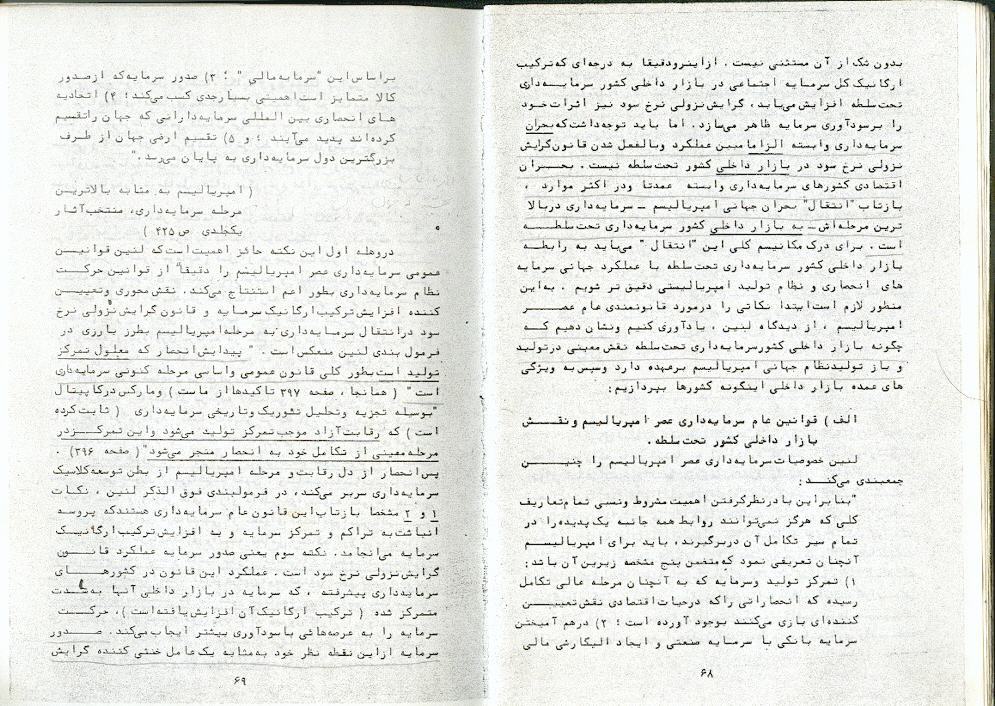 بدون شک از آن مستثنی نیست . از اینرو دقیقا به درجه‌ای که ترکیب
ارگانیک کل سرمایه اجتماعی در بازار داخلی کشور سرمایه‌داری
تحت سلطه افزایش می‌یابد ، گرایش نزولی نرخ سود نیز اثرات خود
را بر سودآوری سرمایه ظاهر می‌سازد. اما باید توجه داشت که بحران
سرمایه‌داری وابسته الزاما مبین عملکرد و بالفعل شدن قانون گرایش
نزولی نرخ سود در بازار داخلی کشور تحت سلطه نیست . بحران
اقتصادی کشورهای سرمایه‌داری وابسته عمدتا و در اکثر موارد ،
بازتاب "انتقال" بحران جهانی امپریالیسم ــ سرمایه‌داری در بالا
ترین مرحله‌اش ــ به بازار داخلی کشور سرمایه‌داری تحت سلطه
است . برای درک مکانیسم کلی این "انتقال " می‌باید به رابطه
بازار داخلی کشور سرمایه‌داری تحت سلطه با عملکرد جهانی سرمایه
های انحصاری و نظام تولید امپریالیستی دقیق تر شویم . به این
منظور لازم است ابتدا نکاتی را در مورد قانونمندی عام عصر
امپریالیسم ، از دیدگاه لنین ، یادآوری کنیم و نشان دهیم که
چگونه بازار داخلی کشور سرمایه‌داری تحت سلطه نقش معینی در تولید
و باز تولید نظام جهانی امپریالیسم برعهده دارد وسپس به ویژگی
های عمده بازار داخلی اینگونه کشورها بپردازیم :
الف ) قوانین عام سرمایه‌داری عصر امپریالیسم و نقش
بازار داخلی کشور تحت سلطه .
لنین خصوصیات سرمایه‌داری عصر امپریالیسم را چنین
جمعبندی می‌کند :
"بنابر این با در نظر گرفتن اهمیت مشروط و نسبی تمام تعاریف
کلی که هرگز نمی‌توانند روابط همه جانبه یک پدیده را در
تمام سیر تکامل آن در بر گیرند ، باید برای امپریالیسم
آنچنان تعریفی نمود که متضمن پنج مشخصه زیرین آن باشد :
۱) تمرکز تولید و سرمایه که به آنچنان مرحله عالی تکامل
رسیده که انحصاراتی را که در حیات اقتصادی نقش تعیین
کننده‌ای بازی می‌کنند بوجود آورده است ؛ ۲) درهم آمیختن
سرمایه بانکی با سرمایه صنعتی و ایجاد الیگارشی مالی
۶۸
بر اساس این "سرمایه مالی " ؛ ۳) صدور سرمایه که از صدور
کالا متمایز است اهمیتی بسیار جدی کسب می‌کند ؛ ۴) اتحادیه
های انحصاری بین المللی سرمایه‌دارانی که جهان را تقسیم
کرده‌اند پدید می‌آیند ؛ و ۵) تقسیم ارضی جهان از طرف
بزرگترین دول سرمایه‌داری به پایان می‌رسد ."
( امپریالیسم به مثابه بالاترین
مرحله سرمایه‌داری، منتخب آثار
یکجلدی ص ۴۲۵ )
در وهله اول این نکته حائز اهمیت است که لنین قوانین
عمومی سرمایه‌داری عصر امپریالیسم را دقیقا" از قوانین حرکت
نظام سرمایه‌داری بطور اعم استنتاج می‌کند . نقش محوری و تعیین
کننده افزایش ترکیب ارگانیک سرمایه و قانون گرایش نزولی نرخ
سود در انتقال سرمایه‌داری به مرحله امپریالیسم بطرز بارزی در
فرمول بندی لنین منعکس است . " پیدایش انحصار که معلول تمرکز
تولید است بطور کلی قانون عمومی و اساسی مرحله کنونی سرمایه‌داری
است " ( همانجا ، صفحه ۳۹۷ تاکیدها از ماست ) و مارکس در کاپیتال
"بوسیله تجزیه و تحلیل تئوریک و تاریخی سرمایه‌داری ( ثابت کرده
است ) که رقابت آزاد موجب تمرکز تولید می‌شود و این تمرکز در
مرحله معینی از تکامل خود به انحصار منجر می‌شود " ( صفحه ۳۹۶) .
پس انحصار از دل رقابت و مرحله امپریالیسم از بطن توسعه کلاسیک
سرمایه‌داری سربر می‌کند ، در فرمولبندی فوق الذکر لنین ، نکات
۱ و ۲ مشخصا بازتاب این قانون عام سرمایه‌داری هستند که پروسه
انباشت به تراکم و تمرکز سرمایه و به افزایش ترکیب ارگانیک
سرمایه می‌انجامد . نکته سوم یعنی صدور سرمایه عملکرد قانون
گرایش نزولی نرخ سود است . عملکرد این قانون در کشورهای
سرمایه‌داری پیشرفته ، که سرمایه در بازار داخلی آنها به شدت
متمرکز شده ( ترکیب ارگانیک آن افزایش یافته است ) ، حرکت
سرمایه را به عرصه‌هائی با سودآوری بیشتر ایجاب می‌کند . صدور
سرمایه از این نقطه نظر خود به مثابه یک عامل خنثی کننده گرایش
۶۹